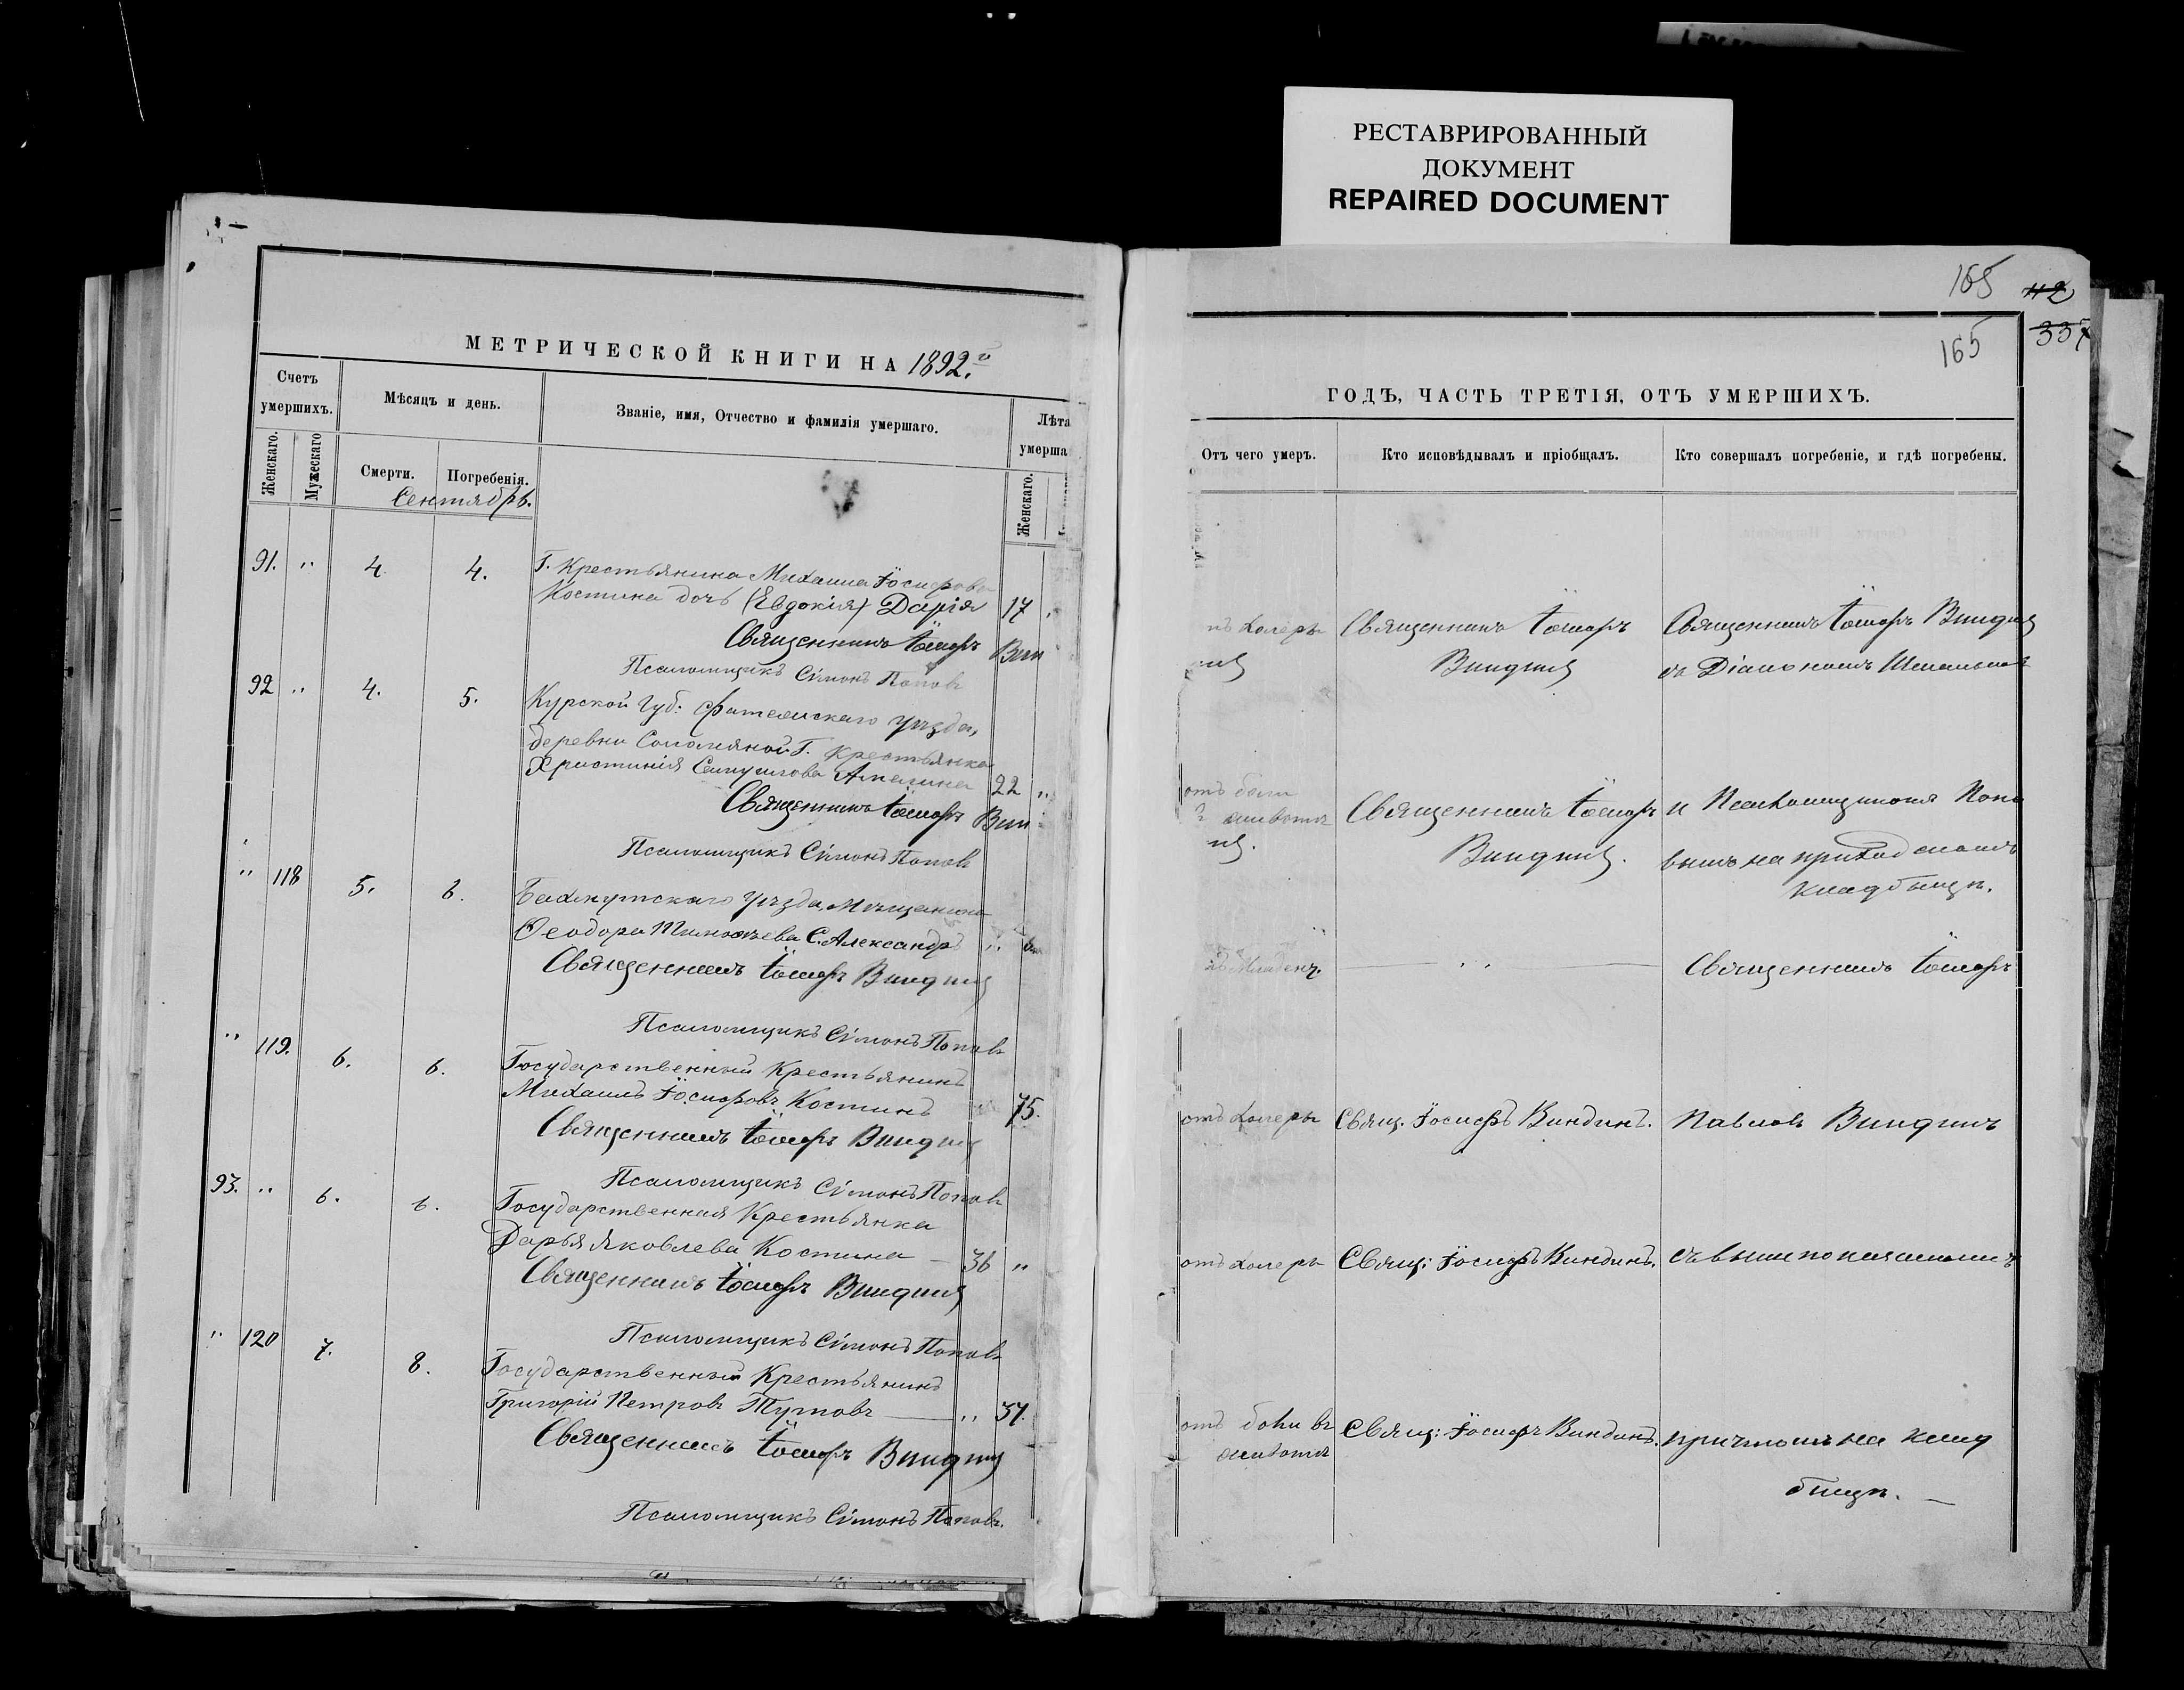 РЕСТАВРИРОВАННЫЙ
ДОКУМЕНТ
REPAIRED DOCUMENT
МЕТРИЧЕСКОЙ КНИГИ НА 1892.й
Счетъ умершихъ.
Женскаго.
Мужескаго
Мѣсяцъ и день.
Смерти.
Погребенія.
Сентябрь.
Званіе, имя, Отчество и фамилія умершаго.
Лѣта
умерша
Женскаго.
91. " 4. 4. Г. Крестьянина Михаила Іосифова
Костина дочь (Евдокія) Дарія 17
Священникъ Іосифъ Вин
Псаломщикъ Сімонъ Попов
92 " 4. 5. Курской Губ: Фатежскаго уѣзда,
деревни Соломяной Г. Крестьянка
Христинія 22 "
Священникъ Іосифъ Вин
Псаломщикъ Сімонъ Попов
" 118 5. 6. Бахмутскаго Уѣзда, Мѣщанина
Ѳеодора С. Александръ "
Священникъ Іосифъ Виндинъ
Псаломщикъ Сімонъ Поповъ
" 119. 6. 6. Государственный Крестьянинъ
Михаилъ Іосифовъ Костинъ 75.
Священникъ Іосифъ Виндинъ
Псаломщикъ Сімонъ Поповъ
93. " 6. 6. Государственная Крестьянка
Дарья Яковлева Костина — 36 "
Священникъ Іосифъ Виндинъ
Псаломщикъ Сімонъ Поповъ
" 120 7. 8. Государственный Крестьянинъ
Григорій Петровъ — " 37.
Священникъ Іосифъ Виндинъ
Псаломщикъ Сімонъ Поповъ.
165 112
165 337
ГОДЪ, ЧАСТЬ ТРЕТІЯ, ОТЪ УМЕРШИХЪ.
Отъ чего умеръ.
Кто исповѣдывалъ и пріобщалъ.
Кто совершалъ погребеніе, и гдѣ погребены.
тъ холеры Священникъ Іосифъ Священникъ Іосифъ Виндинъ
Виндинъ съ Діакономъ
отъ боли
животѣ Священникъ Іосифъ и Псаломщикомъ Попо
Виндинъ. вымъ на приходскомъ
кладбищѣ.
Младенч. — " — Священникъ Іосифъ
отъ холеры Свящ. Іосифъ Виндинъ. Павловъ Виндинъ
отъ холеры Свящ: Іосифъ Виндинъ. съ
отъ боли въ Свящ: Іосифъ Виндинъ. причтомъ на клад
животѣ
бищѣ. —